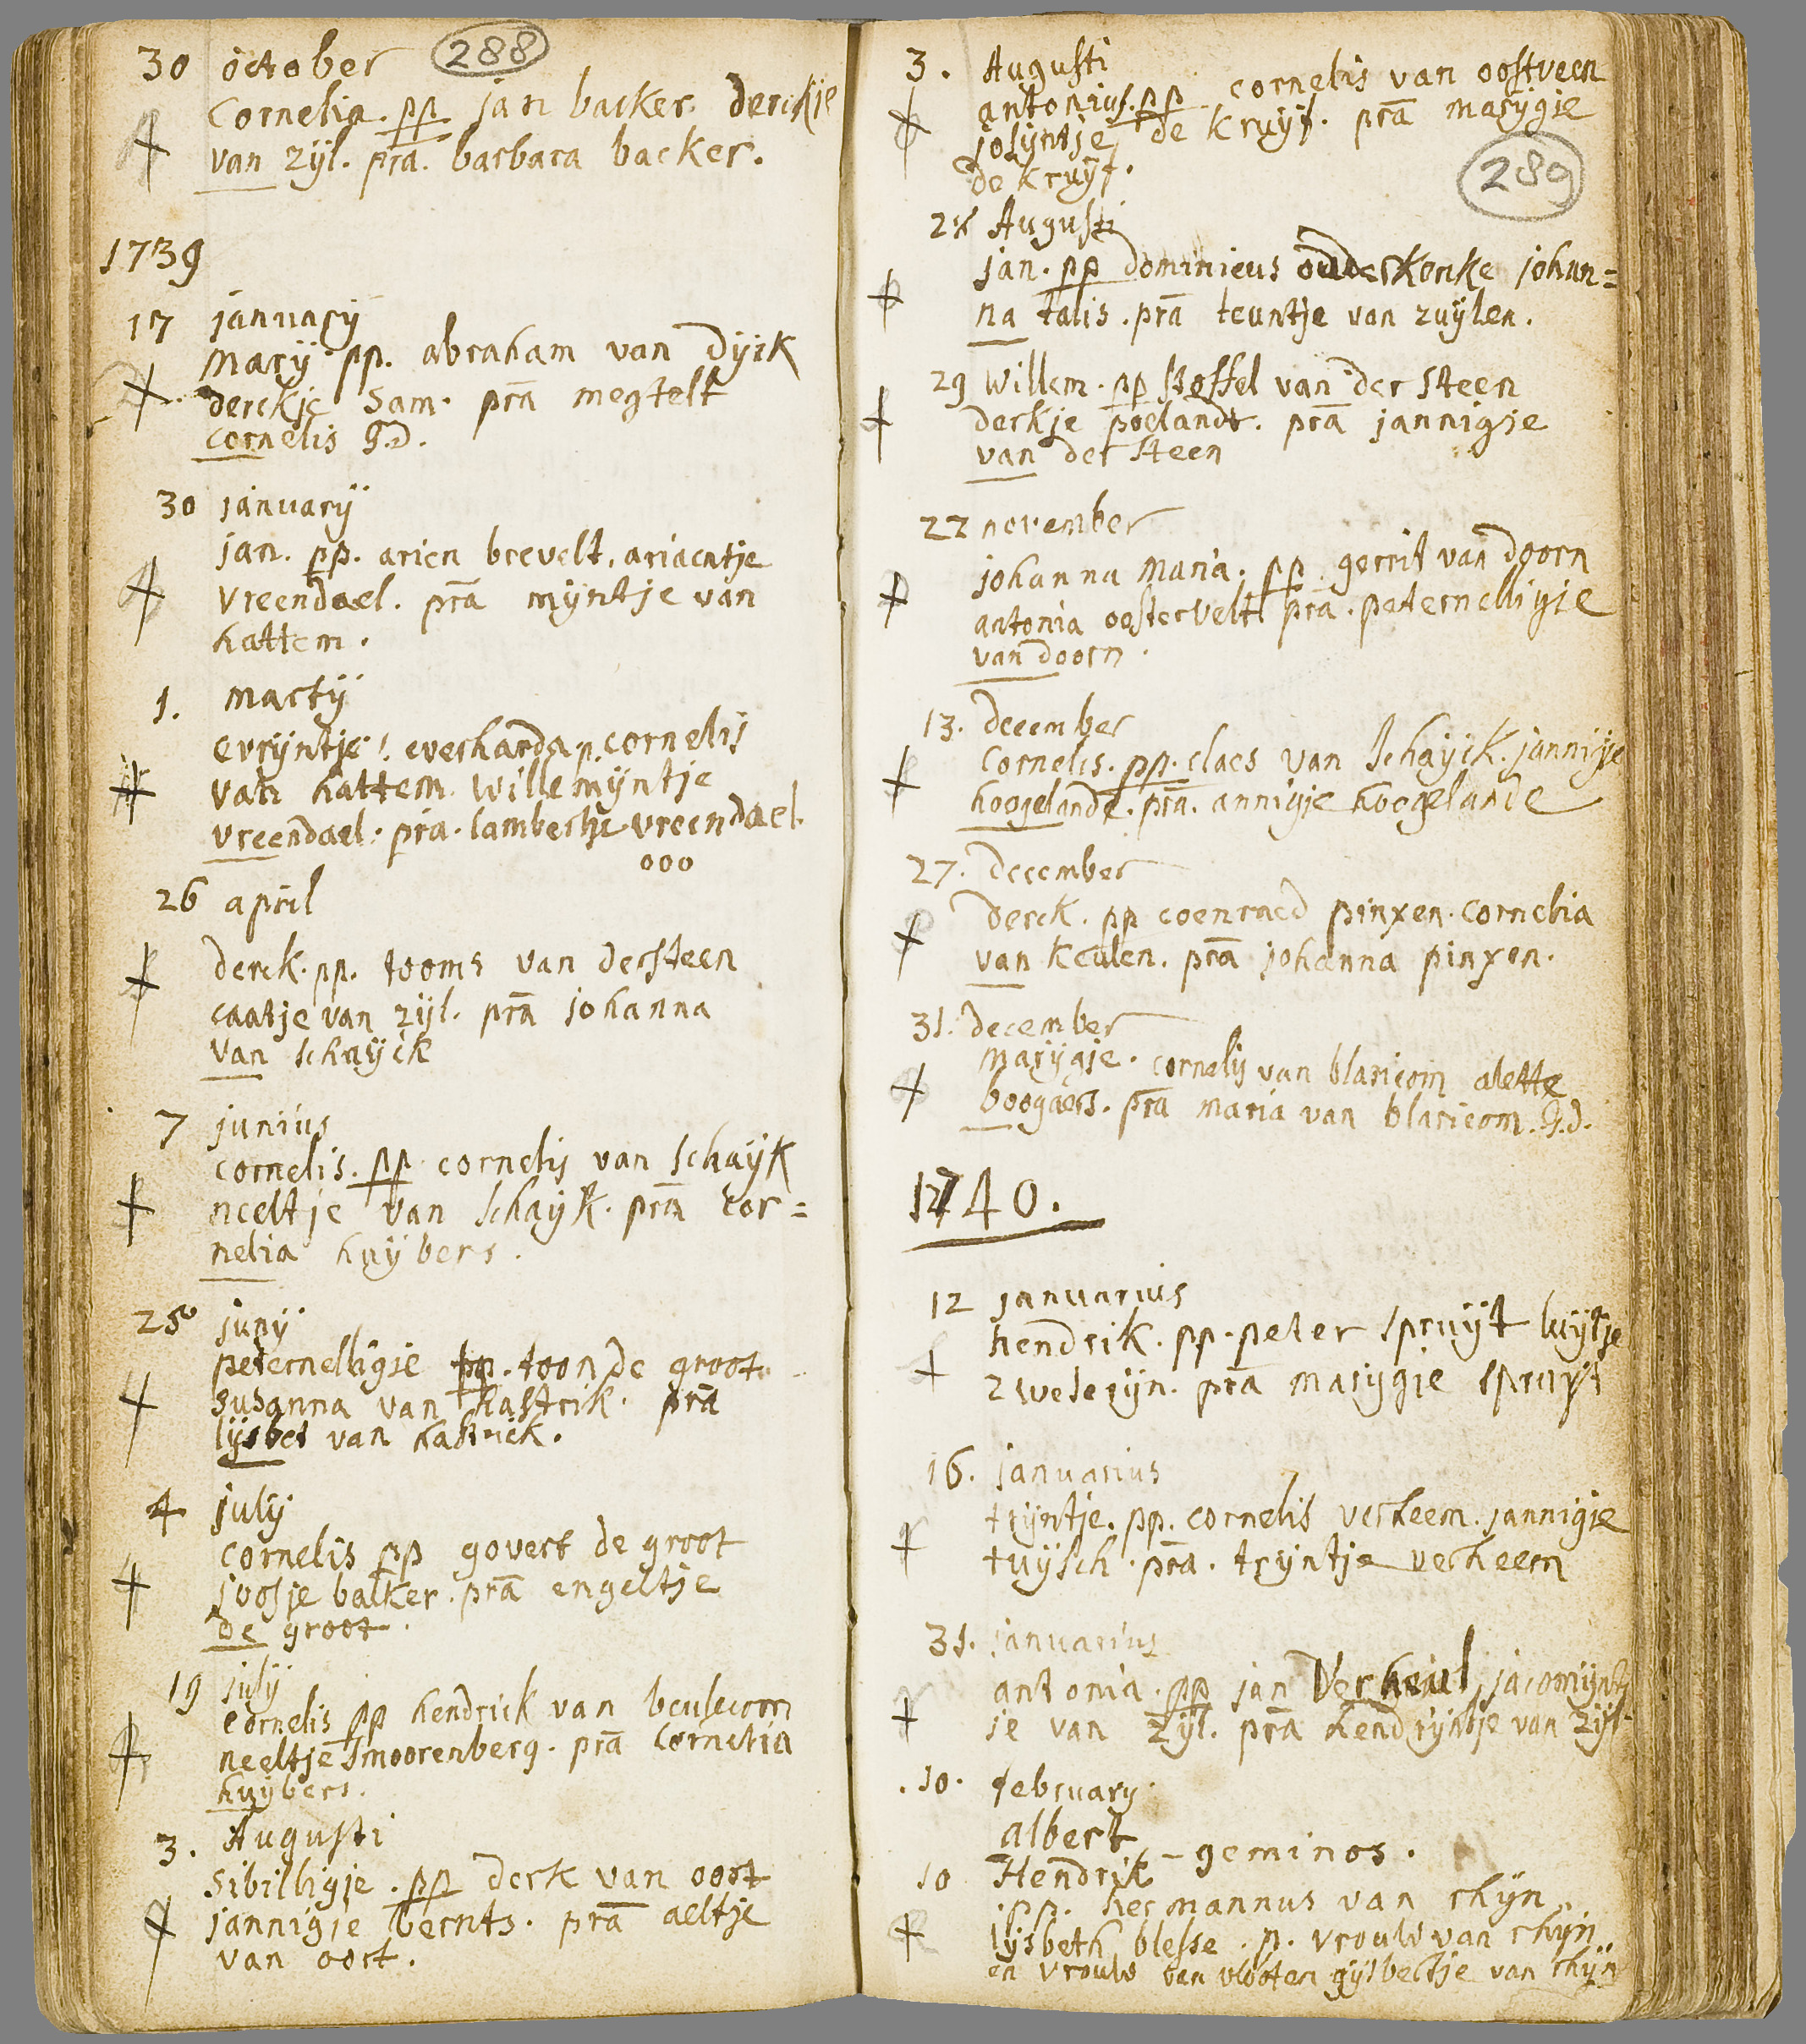 30 october 288
Cornelia. pp jan backer. derckje
van zijl. prā. barbara backer.
1739
17 january
marÿ pp. abraham van Dÿck
derckje Sam. prā megtelt
cornelis G.D.
30 januarÿ
jan. pp. arien brevelt. ariaentje
vreendael. prā mÿntje van
hattem.
1. martÿ
evrÿntje !. everharda p. cornelis
van hattem. Willemÿntje
vreendael. pra. lambertje vreendael.
000
26 april
derck. pp. tooms van der steen
caatje van zijl. prā johanna
van schaÿck
7 junius
cornelis. pp cornelis van schaÿk
neeltje van schaÿk. prā cor=
nelia huÿbers.
25 junÿ
peternelligie pp. toon de groot
susanna van hastrik. prā
lÿsbet van hastrick.
4 julÿ
cornelis pp govert de groot
joosje backer. prā engeltje
de groot.
19 julÿ
cornelis pp hendrick van beusecom
neeltje smoorenberg. prā Cornelia
huÿbers.
3. Augusti
Sibilligje. pp derk van oost
jannigie bernts. prā aeltje
van oost.
3. Augusti
antonius. pp cornelis van oostveen
josÿntje de kruÿf. prā marÿgie
de kruÿf.
289
28 Augusti
jan. pp dominicus ouderkerke johan=
na talis. prā teuntje van zuÿlen.
29 willem. pp stoffel van der steen
derkje poelandt. prā jannigie
van der steen
22 november
johanna maria. pp. gerrit van doorn
antonia oostervelt prā. peternelligie
van doorn.
13. december
Cornelis. pp. claes van schaÿck. jannigje
hoogelande. prā. annigje hoogelande
27. december
derck. pp coenraed pinxen. cornelia
van keulen. prā johanna pinxen.
31. december
marÿgie. cornelis van blaricom alette
boogaers. prā maria van blaricom. G.d.
1740.
12 januarius
hendrik. pp. peter spruÿt luÿtje
zweterÿn. prā marÿgie spruÿt
16. januarius
trÿntje. pp. cornelis verheem. jannigie
tuÿsch. prā. trÿntje verheem
31. januarius
antonia. pp jan Verheul jacomÿnt
je van zÿl. prā hendrÿntje van zÿl.
10. februarÿ
albert
10 Hendrik - geminos.
pp. hermannus van rhÿn
lÿsbeth blesse. p. vrouw van rhÿn
en vrouw van vlooten gÿsbertje van rhÿn